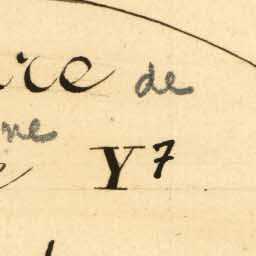 re de
ne
e Y7